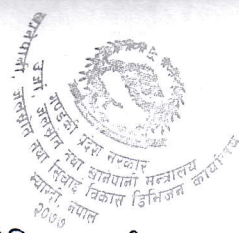 गण्डकी प्रदेश सरकार
उर्जा जलस्रोत तथा खानेपानी मन्त्रालय
खानेपानी, जलस्रोत तथा सिंचाई विकास डिभिजन कार्यालय
म्याग्दी, नेपाल
२०७७